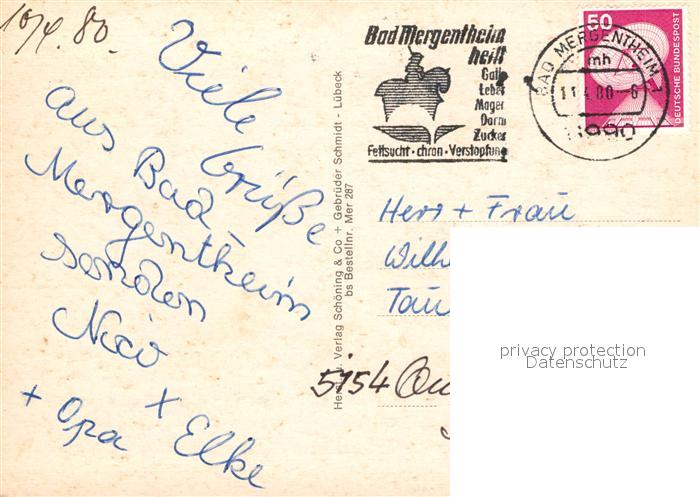 10/4.80.
Viele Grüße
aus Bad
Mergentheim
senden
Nico
+ Opa + Elke
Bad Mergentheim
heilt
Galle
Leber
Magen
Darm
Zucker
Fettsucht · chron. Verstopfung
BAD MERGENTHEIM 1
mh
11.4.80-6
6990
50
DEUTSCHE BUNDESPOST
Herst. u. Verlag Schöning & Co + Gebrüder Schmidt - Lübeck
bs Bestellnr. Mer 287
Herr + Frau
Wilh
Tau
5154 Qu
privacy protection
Datenschutz